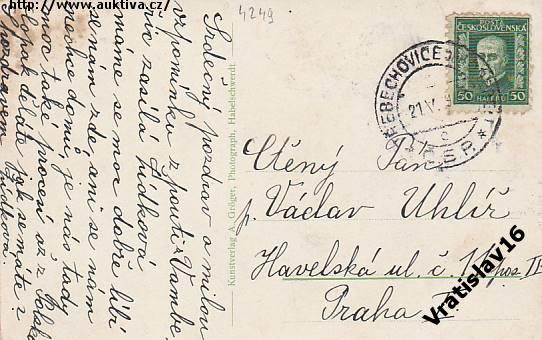 http://www.auktiva.cz/
4249
Srdečný pozdrav a milou
vzpomínku z pouti z Vambe
řic zasílá Lidkova
máme se moc dobře líbí
se nám zde, ani se nám
nechce domů, je nás tady
moc také procení až z Polska
Copak děláte jak se máte?
S pozdravem Lidkova.
Kunstverlag A. Gröger, Photograph, Habelschwerdt
POŠTA
ČESKOSLOVENSKÁ
50 HALÉŘŮ 50
TŘEBECHOVICE
21.V
ČSR
Ctěný Pan
p. Václav Uhlíř
Havelská ul. č. 11 pos. II
Praha I
Vratislav16